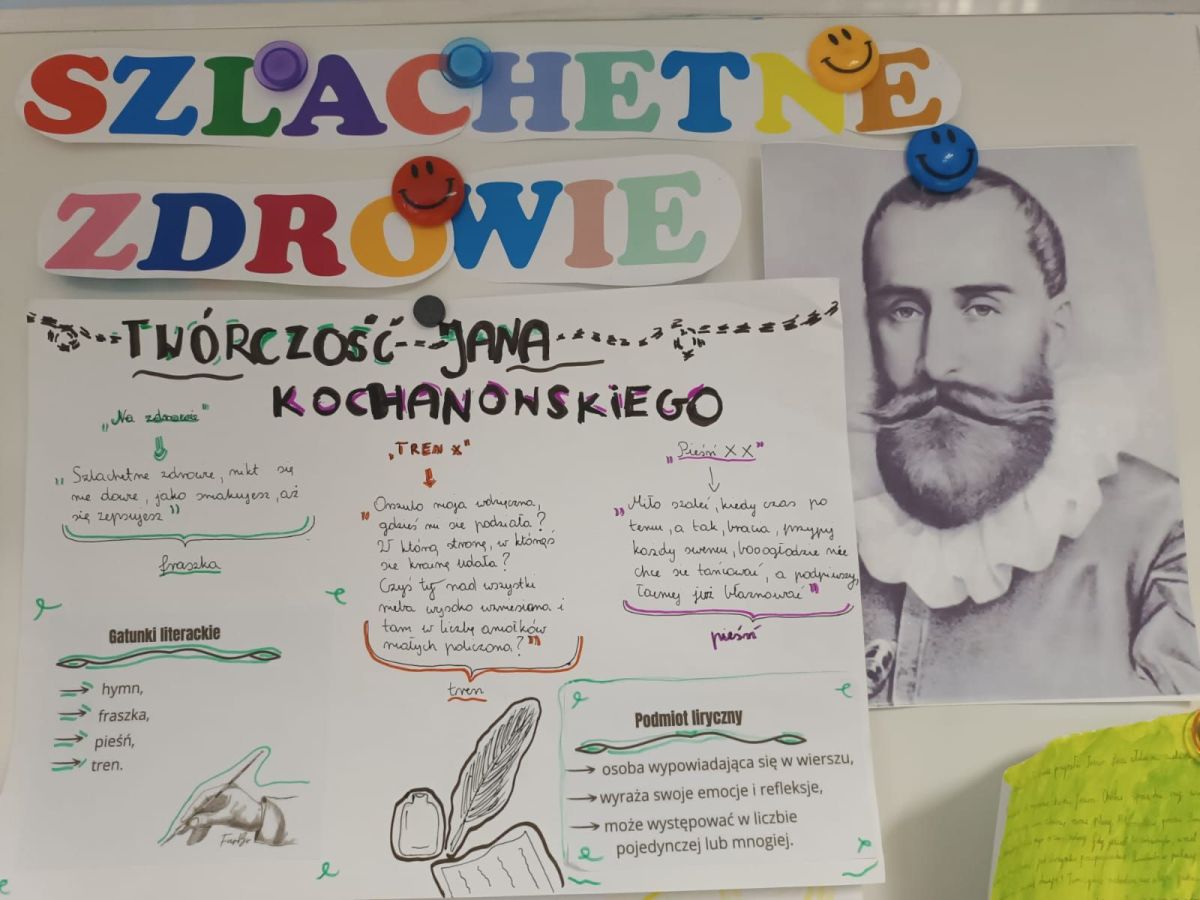 SZLACHETNE
ZDROWIE
TWÓRCZOŚĆ JANA
KOCHANOWSKIEGO
„Na zdrowie"
„Szlachetne zdrowie, nikt się
nie dowie, jako smakujesz, aż
się zepsujesz"
fraszka
„TREN X"
„Orszulo moja wdzięczna,
gdzieś mi się podziała?
W którą stronę, w którąś
się krainę udała?
Czyś ty nad wszystki
nieba wysoko wzniesiona i
tam w liczbę aniołków
małych policzona?"
tren
„Pieśń XX"
„Miło szaleć, kiedy czas po
temu, a tak, bracia, przypij
każdy swemu, bo o głodzie nie
chce się tańcować, a podpiwszy,
łacniej już błaznować"
pieśń
Gatunki literackie
hymn,
fraszka,
pieśń,
tren.
Podmiot liryczny
osoba wypowiadająca się w wierszu,
wyraża swoje emocje i refleksje,
może występować w liczbie
pojedynczej lub mnogiej.